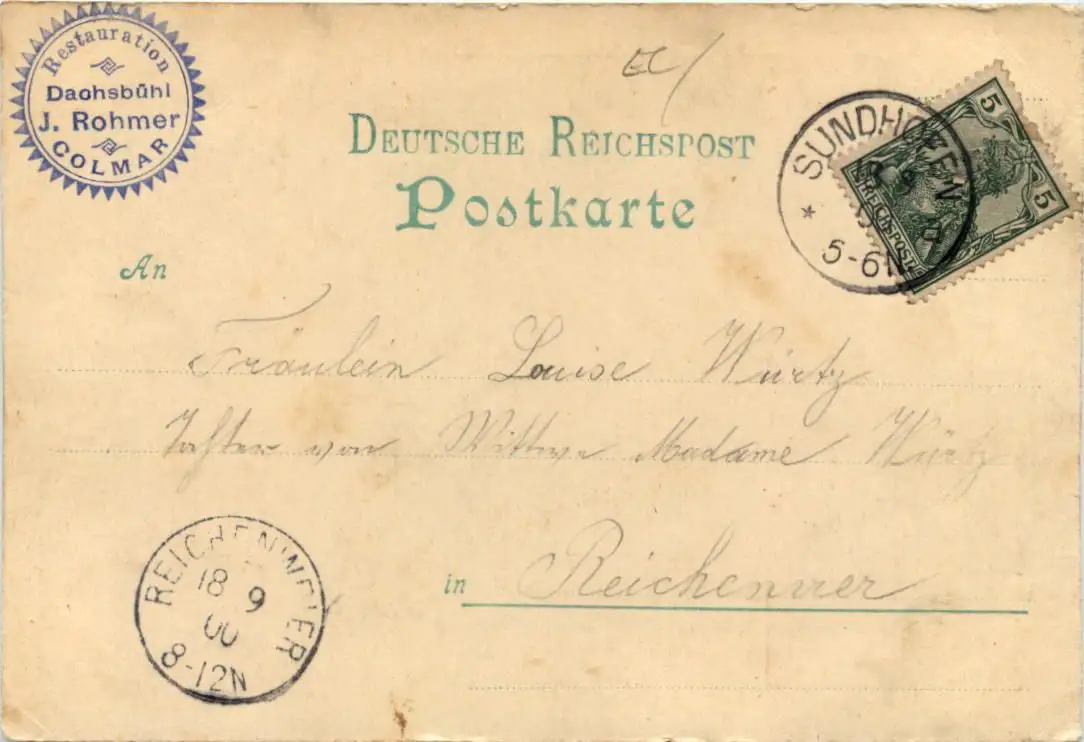 Restauration
Dachsbühl
J. Rohmer
COLMAR
EC/
DEUTSCHE REICHSPOST
Postkarte
SUNDHOFEN
5-6N
5
5
REICHSPOST
An
Fräulein Louise Würtz
Tochter von Wittwe Madame Würtz
in Reichenwier
REICHENWEIER
18 9
00
8-12N